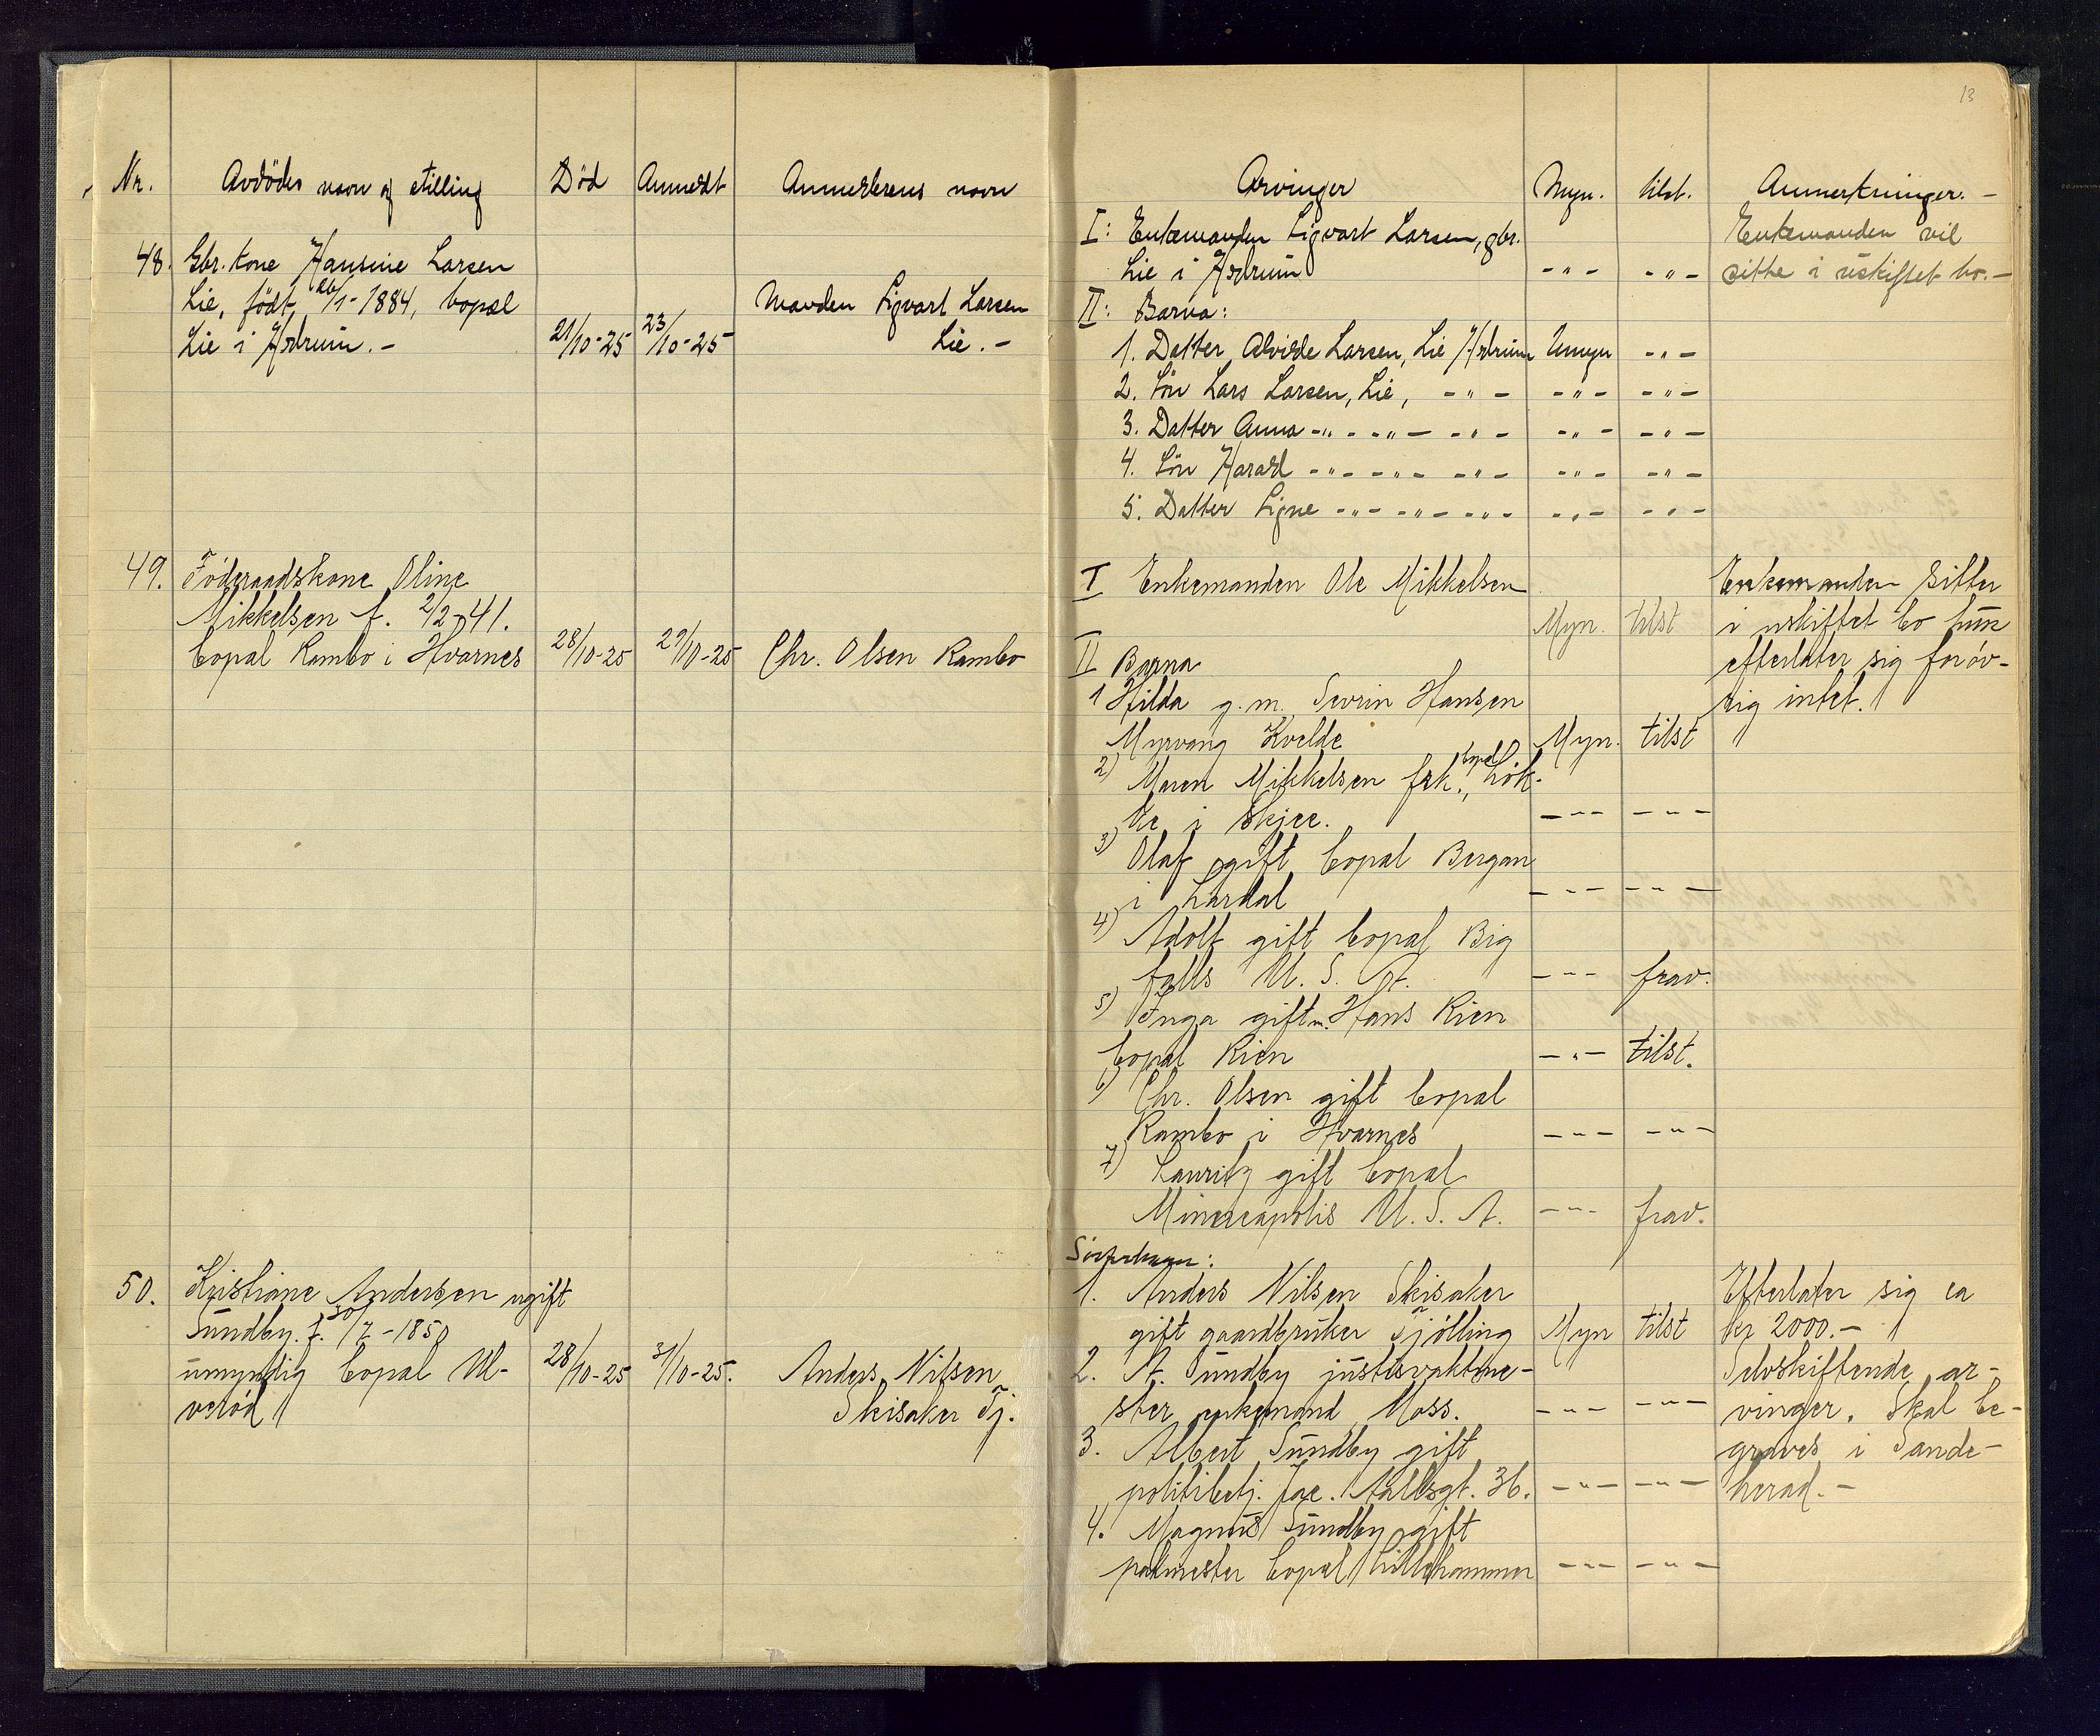 13
Nr. Avdödes navn og stilling Död Anmeldt Anmelderens navn
48. Gbr. kone Hansine Larsen
Lie, födt 26/1-1884, bopæl
Lie i Hedrum.-
21/10-25 23/10-25
Manden Sigvart Larsen
Lie.-
49. Föderaadskone Oline
Mikkelsen f. 2/2-41.
bopal Rambo i Hvarnes 28/10-25 29/10-25 Chr. Olsen Rambo
50. Kristiane Andersen ugift
Sundby. f. 30/7-1850
umyndig bopal Ul-
veröd
28/10-25 31/10-25. Anders Nilsen
Skisaker Tj.
Arvinger Myn. tilst. Anmerkninger.-
I: Enkemanden Sigvart Larsen, gbr.
Lie i Hedrum -"- -"-
Enkemanden vil
sitte i uskiftet bo.-
II: Barna:
1. Datter Alvilde Larsen, Lie Hedrum Umyn -"-
2. Sön Lars Larsen, Lie, -"- -"- -"-
3. Datter Anna -"- -"- -"- -"- -"-
4. Sön Harald -"- -"- -"- -"- -"-
5. Datter Signe -"- -"- -"- -"- -"-
I Enkemanden Ole Mikkelsen
Myn. tilst
Enkemanden sitter
i uskiftet bo hun
efterlater sig foröv-
rig intet.
II Barna
1 Hilda g.m. Sevrin Hansen
Myrvang Kvelde Myn. tilst
2) Maren Mikkelsen frk., bopal Lök-
ke i Skjee. -"- -"-
3) Olaf gift bopal Bergan
i Lardal -"- -"-
4) Adolf gift bopal Big
falls U. S. A. -"- frav.
5) Inga gift m. Hans Rien
bopal Rien -"- tilst.
6) Chr. Olsen gift bopal
Rambo i Hvarnes -"- -"-
7) Lauritz gift bopal
Mineeapolis U. S. A. -"- frav.
1. Anders Nilsen Skisaker
gift gaardbruker Tjölling Myn tilst
2. A. Sundby justervaktme-
ster enkemand Moss. -"- -"-
3. Albert Sundby gift
politibetj. Jac. Aallsgt. 36. -"- -"-
4. Magnus Sundby gift
pakmester bopal Lillehammer -"- -"-
Efterlater sig ca
kr 2000.-
Selvskiftende ar-
vinger. Skal be-
graves i Sande-
herad.-